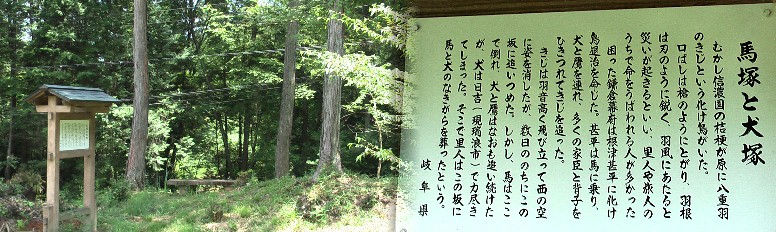 馬塚と犬塚
むかし信濃国の桔梗が原に八重羽
のきじという化け鳥がいた。
口ばしは槍のようにとがり、羽根
は刃のように鋭く、羽風にあたると
災いが起きるといい、里人や旅人の
うちで命をうばわれる人が多かった
困った鎌倉幕府は根津甚平に化け
鳥退治を命じた。甚平は馬に乗り、
犬と鷹を連れ、多くの家臣と背子を
ひきつれてきじを追った。
きじは羽音高く飛び立って西の空
に姿を消したが、数日ののちにこの
坂に追いつめた。しかし、馬はここ
で倒れ、犬と鷹はなおも追い続けた
が、犬は日吉（現瑞浪市）で力尽き
てしまった。そこで里人はこの坂に
馬と犬のなきがらを葬ったという。
岐阜県